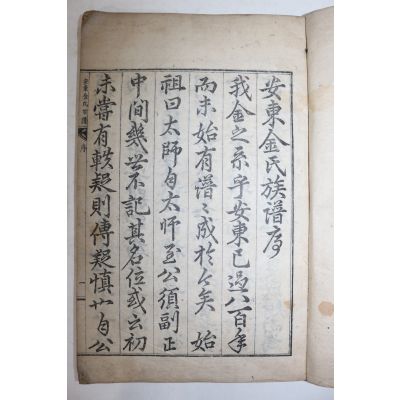 安東金氏族譜序
我金之系乎安東已過八百年
而未始有譜〻成於今矣 始
祖曰太師自太師至公須副正
中間幾世不記其名位或云初
未嘗有軼疑則傳疑慎也自公
安東金氏族譜 序 一